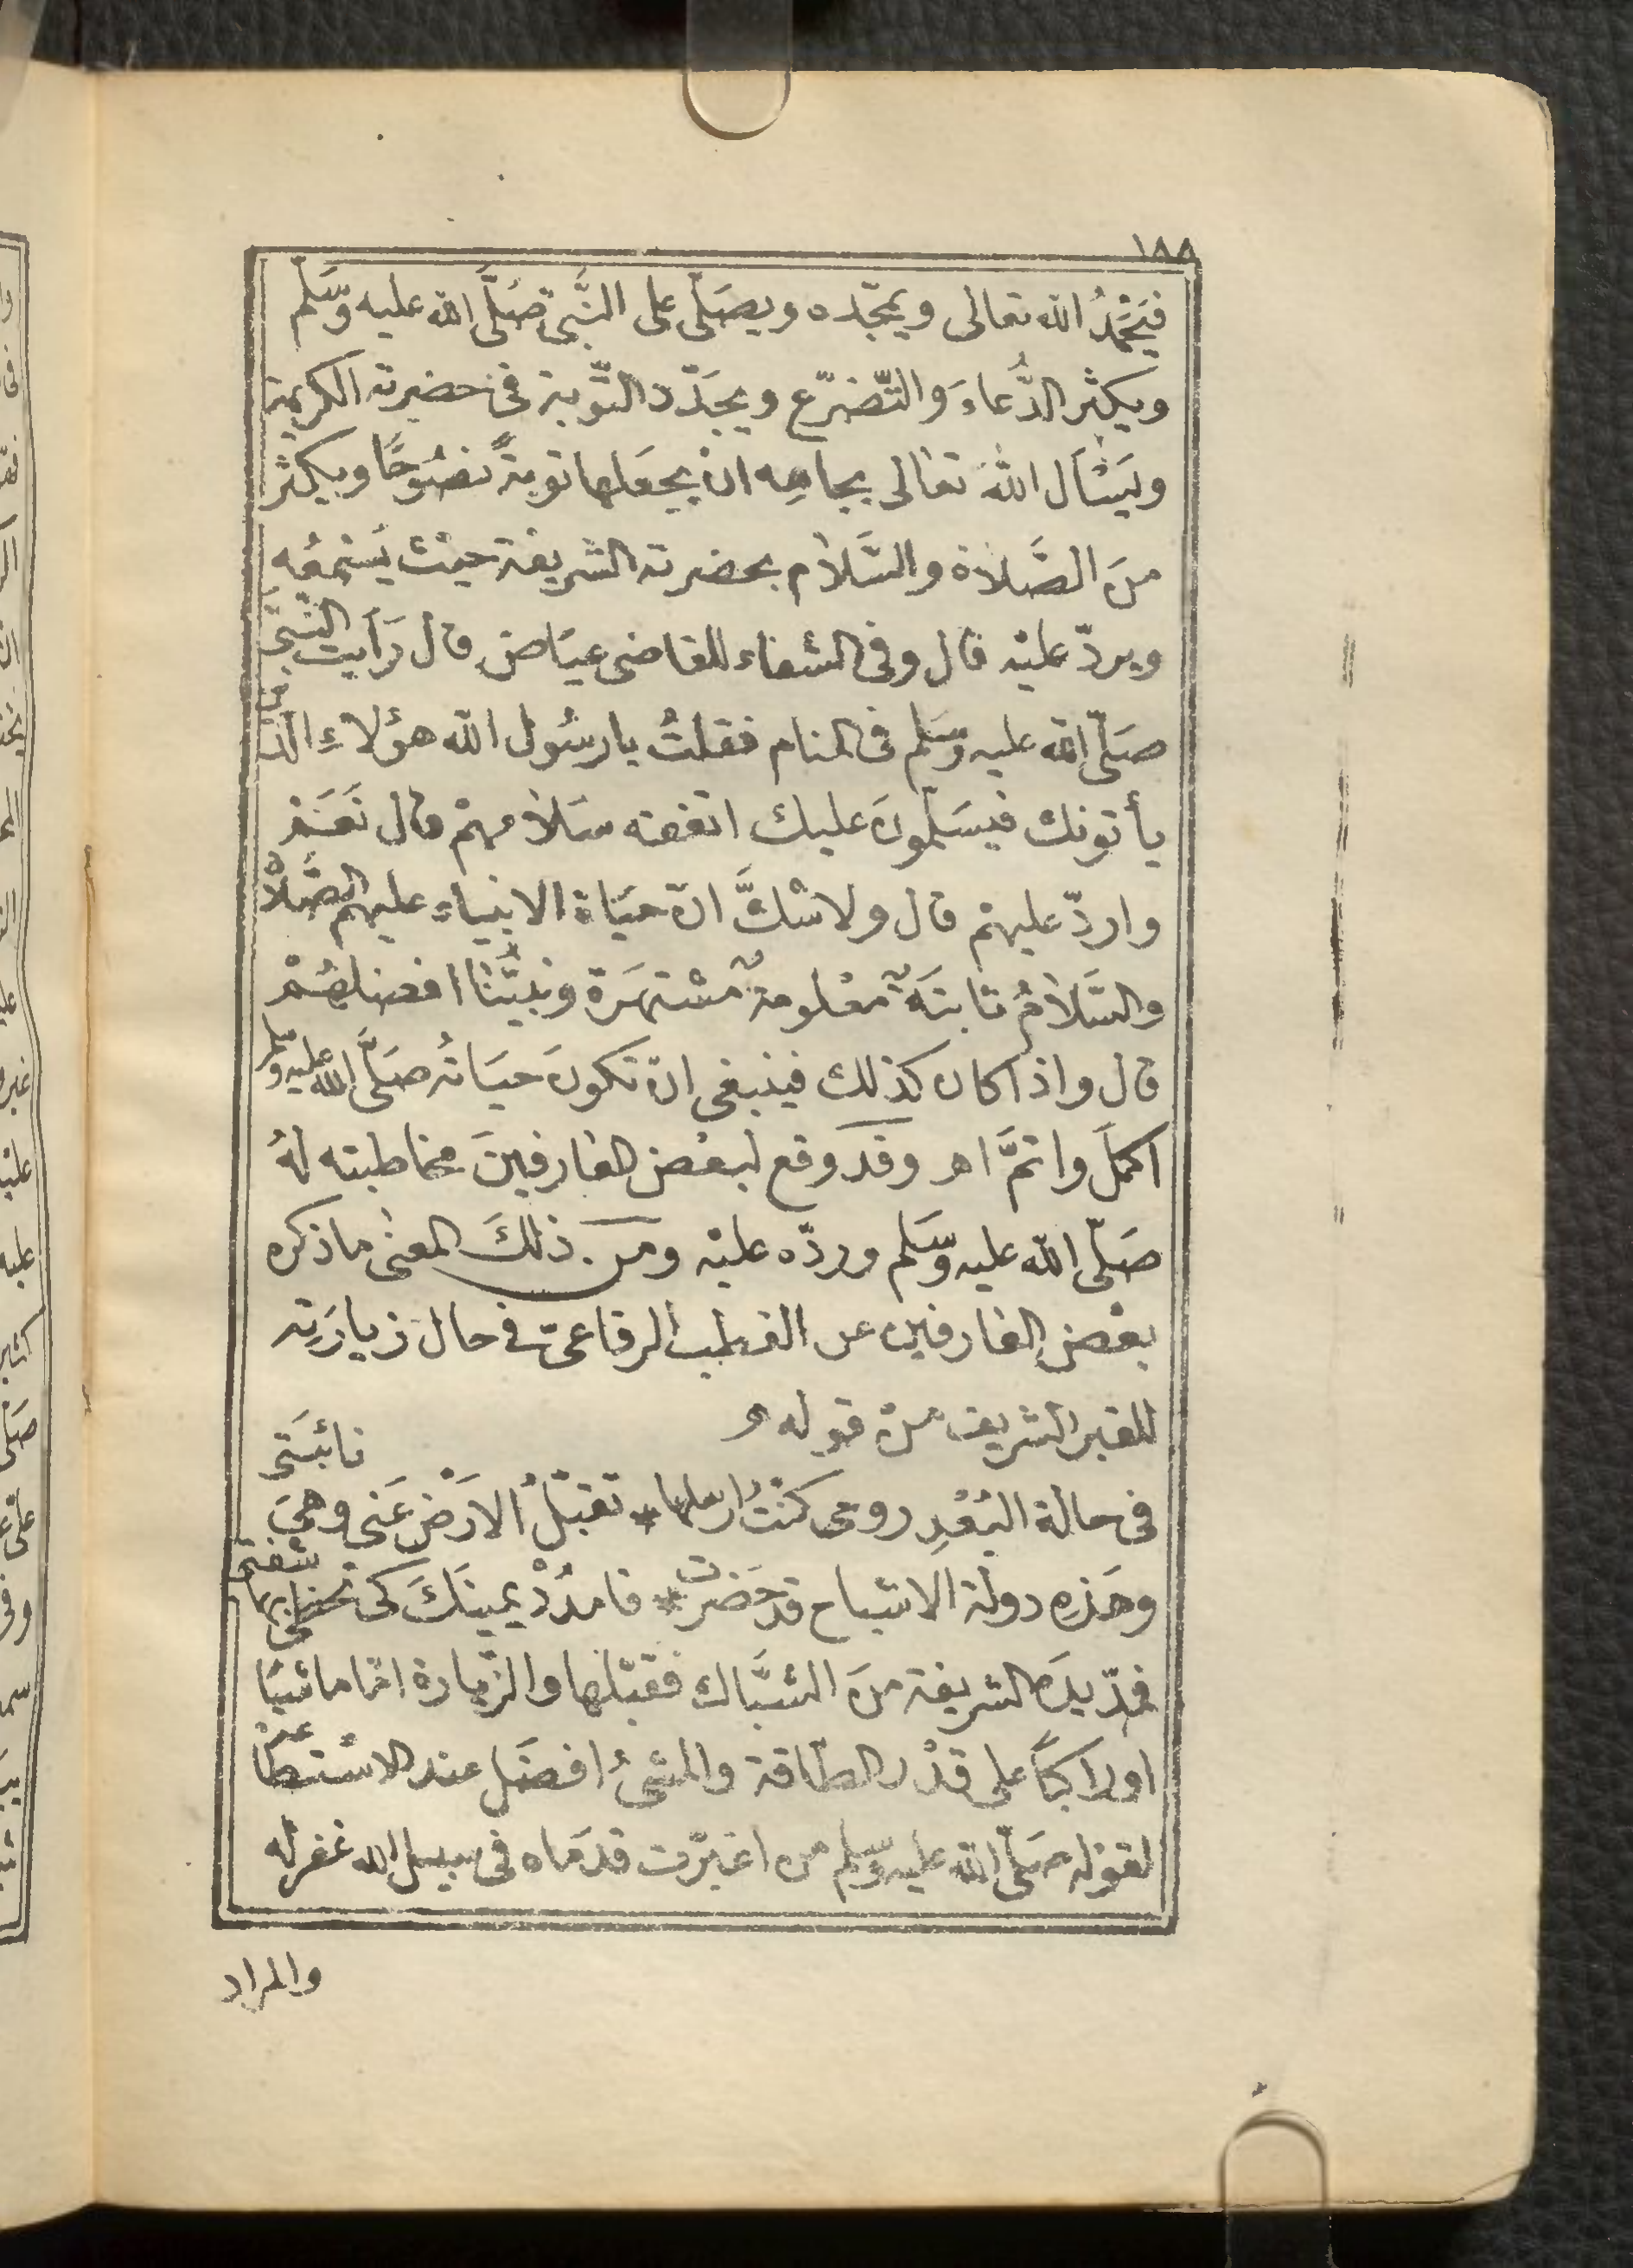 ١٨٨
فيَحْمَدُ الله تعالى ويمجّده ويصَلّى على النَّبىّ صَلَّى الله عليه وسَّلم
ويكثر الدُّعاءَ والتّضرّع ويجَدّد التّوبة فى حضرته الكريمة
ويَسْأل اللهَ تعالى بجاهِه انْ يجعَلها توبةً نصُوحًا ويكثر
منَ الصَّلاة والسَّلام بحضرته الشريفة حيث يَسْمعُه
ويردّ عليْه قال وفى الشفاء للقاضى عيَاض قال رَأيت النّبىَّ
صَلّى الله عليه وسَلم فى المنام فقلتُ يا رسُول الله هؤلاءِ الذين
يأتونك فيسَلّمونَ عليك اتفقه سَلامهمْ قال نَعَمْ
واردّ عليهمْ قال ولا شكَّ انّ حيَاة الانبياء عليهم الصَّلاة
والسَّلامُ ثابتَةٌ معْلومةٌ مسْتمرَة ونبيّنا افضلهُمْ
قال واذا كان كذلك فينبغى انْ تكونَ حيَاتُه صَلَّى الله عليه وسلم
اكملَ واتمَّ اهـ وقد وقع لبعْض العَارفينَ مخاطبته لهُ
صَلّى الله عليه وسَلم وردّه عليْه ومن ذلكَ المعنى ما ذكره
بعْض العَارفين عن القطب الرفاعىّ فى حال زيارَته
للقبر الشريف منْ قوله
فى حالة البُعْدِ روحى كنْتُ ارسلها * تقبّلُ الارَضْ عَنى وهىَ نائبَتى
وهَذه دولة الاشباح قد حَضَرت * فامدُدْ يمينَكَ كى تحظى بها شفتى
فمدّ يدَه الشريفة منَ الشبَّاك فقبّلها والزّيارة امّا ماشيًا
او راكبًا على قدْر الطّاقة والمشىُ افضَل عند الاسْتطاعة
لقوْله صَلّى الله عليه وسَلم من اغبرّت قدمَاه فى سبيل الله غفر له
والمراد